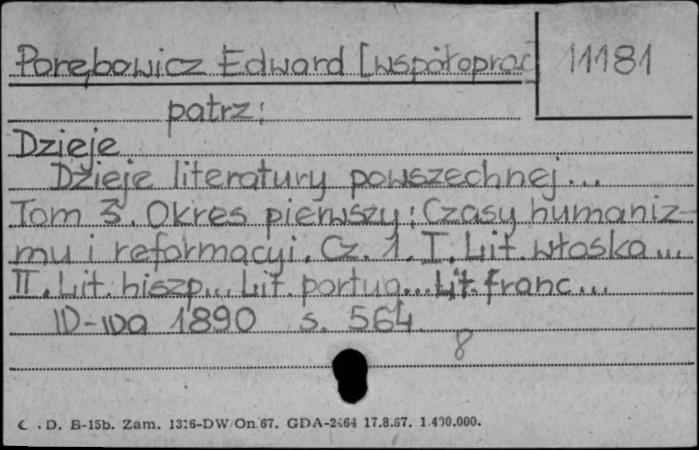 Porębowicz Edward [współoprac] 11181
patrz:
Dzieje
Dzieje literatury powszechnej...
Tom 3. Okres pierwszy: Czasy humaniz-
mu i reformacyi. Cz. 1. I. Lit. włoska...
II. Lit. hiszp... Lit. portug... Lit. franc...
W-wa 1890 s. 564
8
D. B-15b. Zam. 1326-DW/On/67. GDA-2464 17.8.67. 1.400.000.